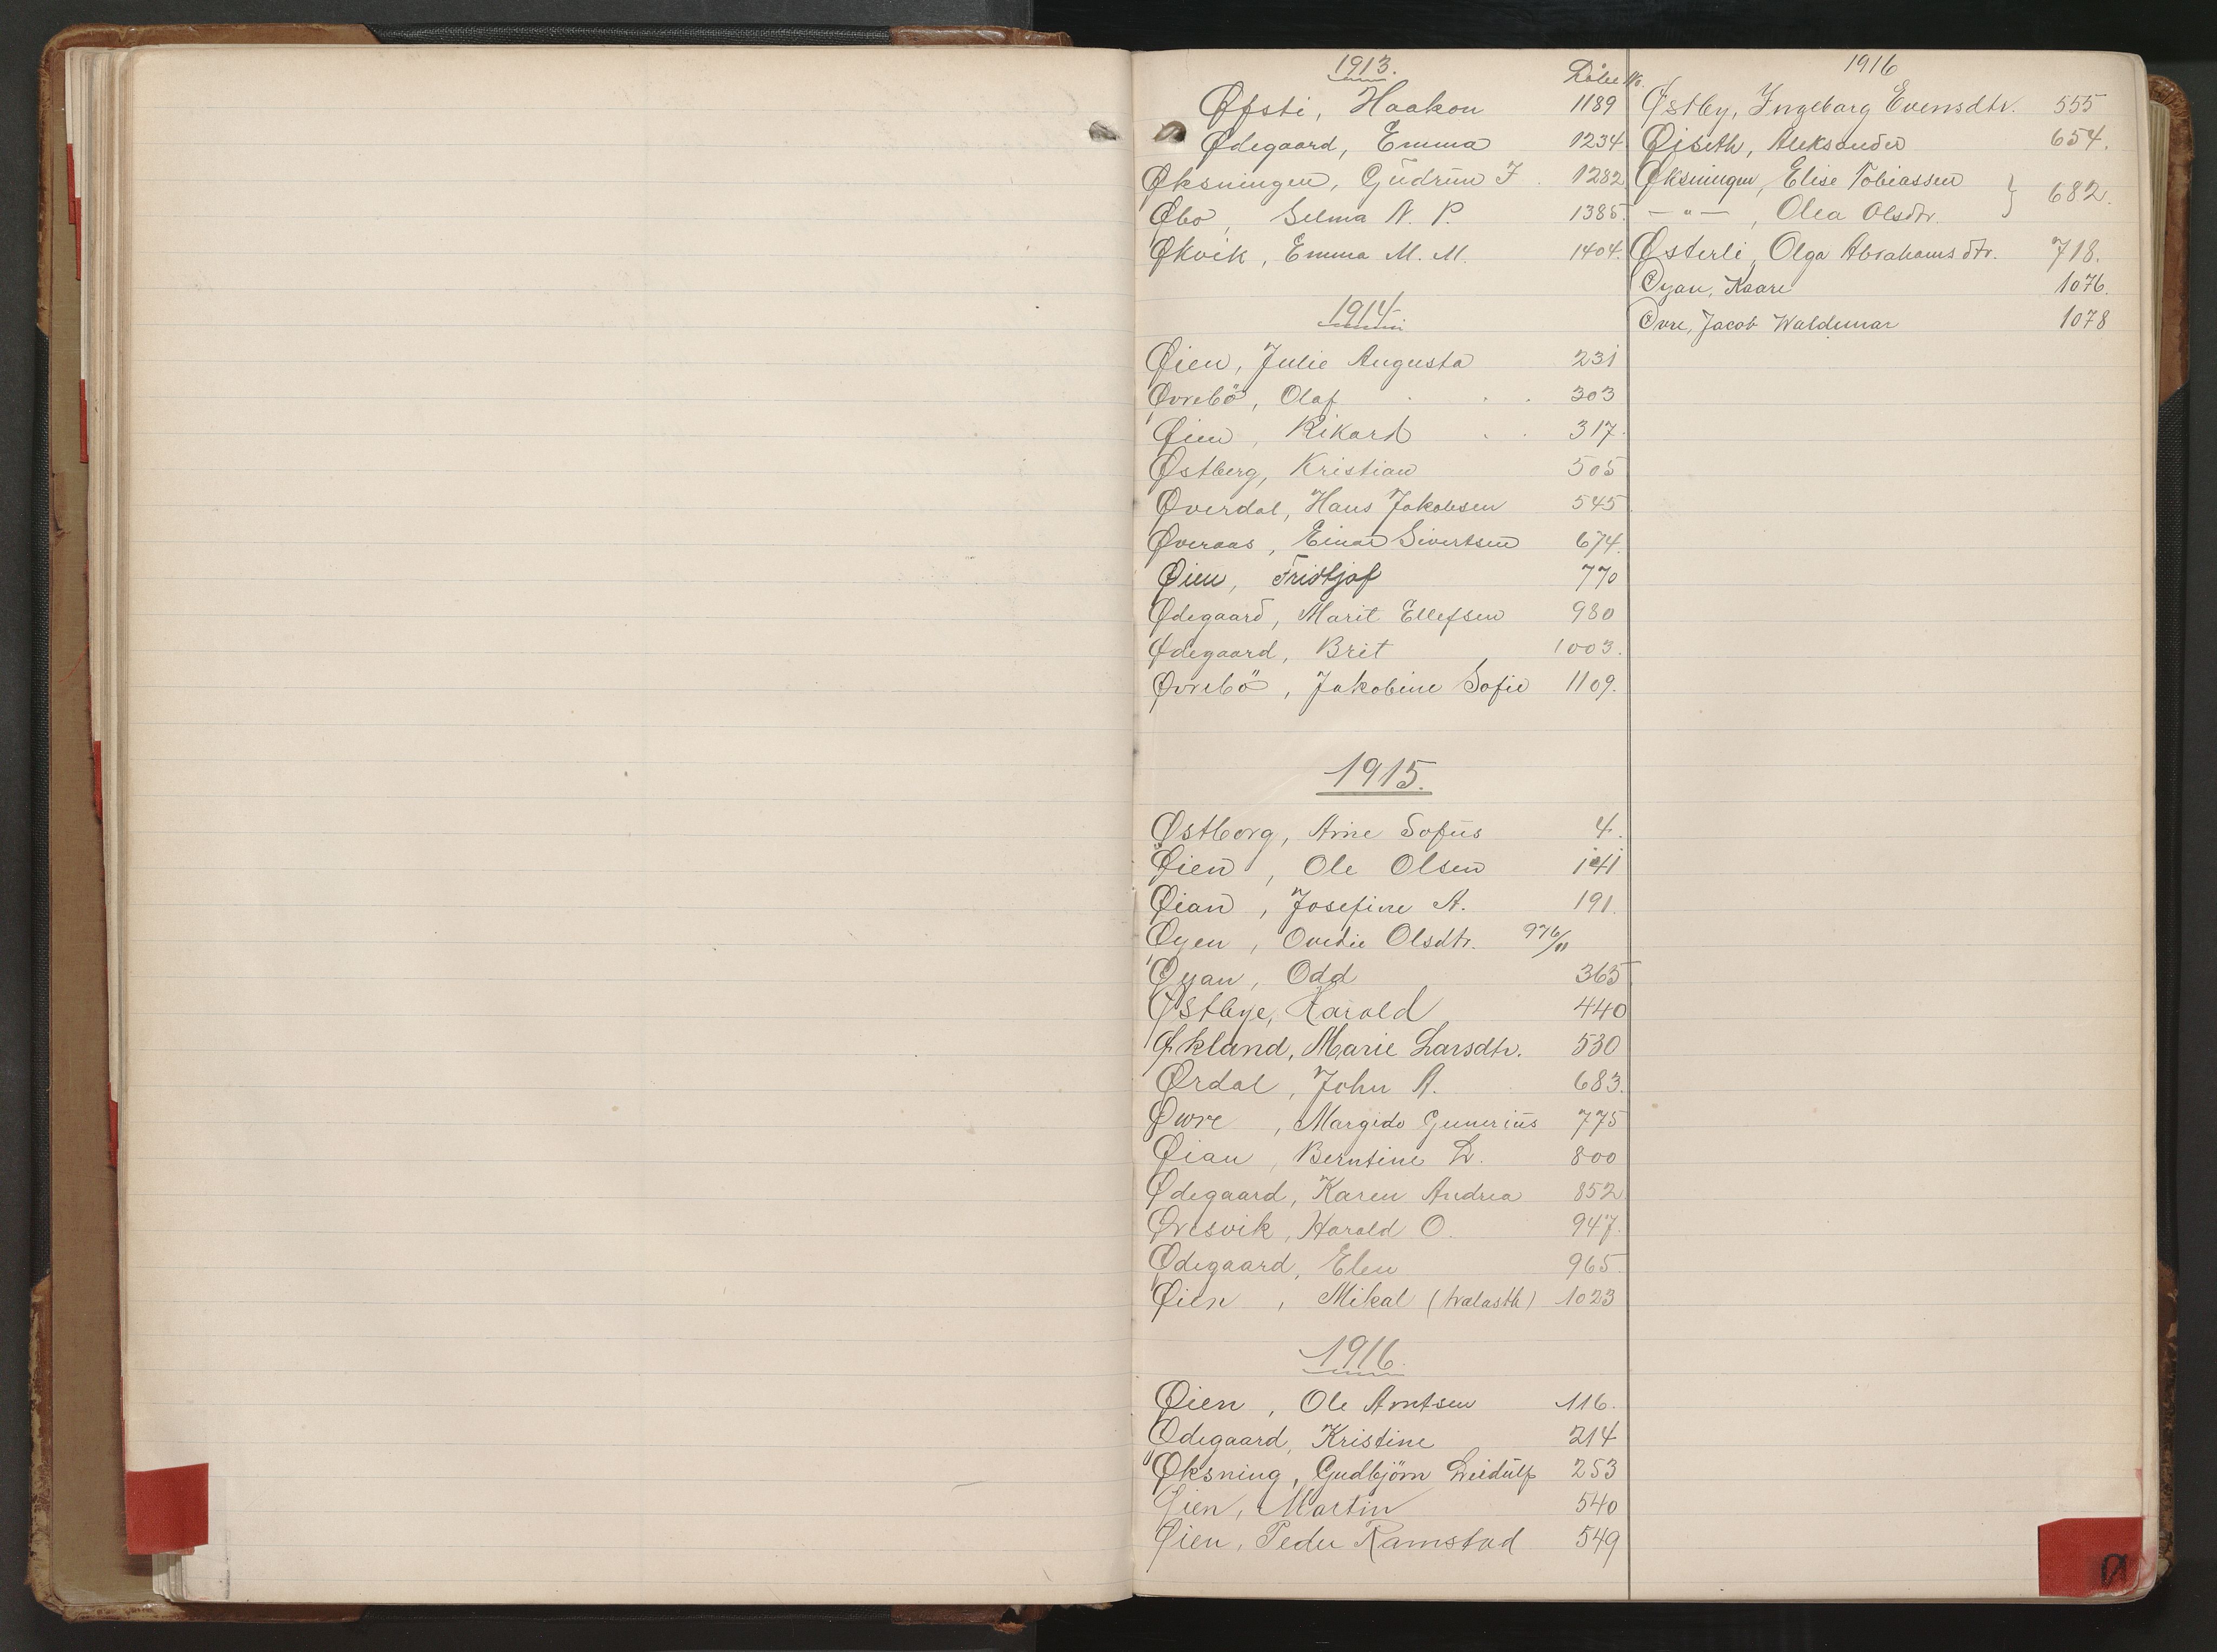 1913.
Löbe No.
Øfsti, Haakon 1189
Ødegaard, Emma 1234
Øksningen, Gudrun J. 1282
Øbo, Selma N. P. 1385.
Økvik, Emma M. M. 1404.
1914
Øien, Julie Augusta 231
Øvrebö, Olaf 303
Øien, Rikard 317.
Østberg, Kristian 505
Øverdal, Hans Jakobsen 545
Øveraas, Einar Sivertsen 674.
Øien, Fridtjof 770
Ødegaard, Marit Ellefsen 980
Ødegaard, Brit 1003.
Øvrebö, Jakobine Sofie 1109.
1915.
Østborg, Arne Sofus 4.
Øien, Ole Olsen 141
Øian, Josefine A. 191.
Øyen, Ovedie Olsdtr. 976/11
Øyan, Odd 365
Østbye, Harald 440
Økland, Marie Larsdtr. 530
Ørdal, John A. 683.
Øwre, Margido Gunerius 775
Øian, Berntine L. 800
Ødegaard, Karen Andrea 852
Øresvik, Harald O. 947.
Ødegaard, Elen 965.
Øien, Mikal 1023
1916.
Øien, Ole Arntsen 116.
Ødegaard, Kristine 214
Øksning, Gudbjörn Leidulf 253
Øien, Martin 540
Øien, Peder Ramstad 549
1916
Østby, Ingeborg Evensdtr. 555
Øiseth, Aleksander 654.
Øksningen, Elise Tobiassen } 682.
— " —, Olea Olsdtr.
Østerli, Olga Abrahamsdtr. 718.
Øyan, Kaare 1076.
Øvre, Jacob Waldemar 1078
Ø